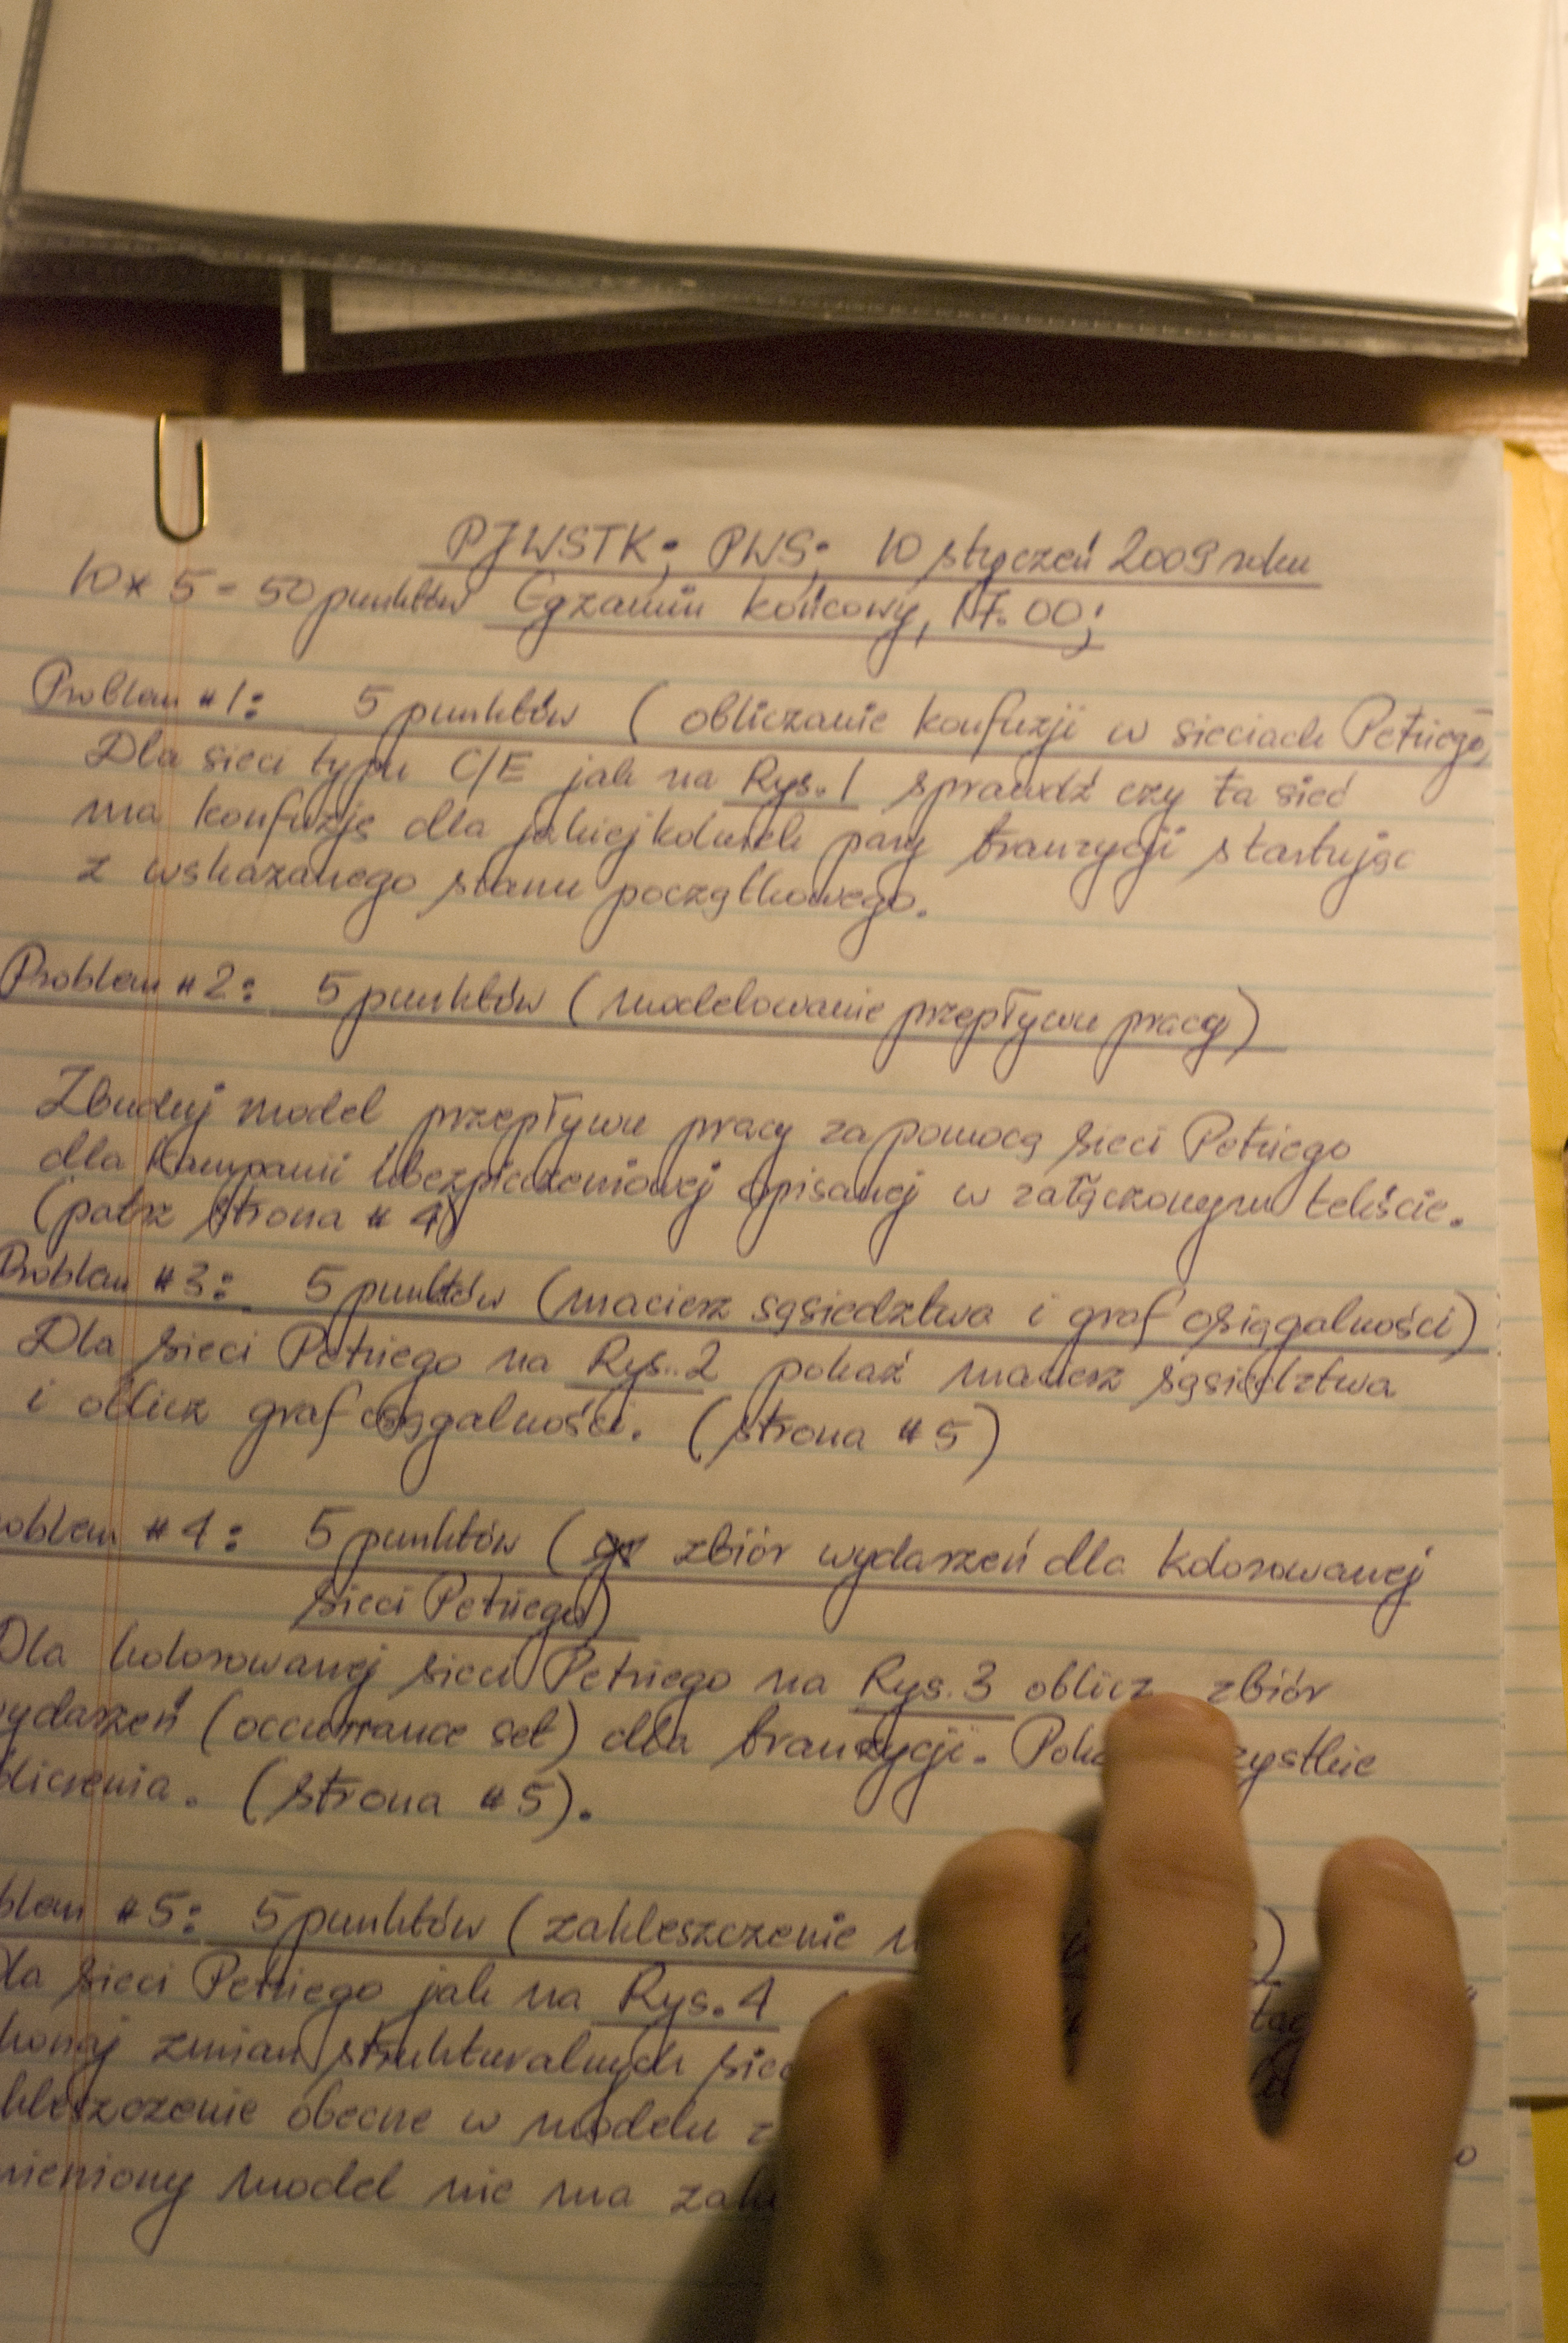 PJWSTK; PWS; 10 styczeń 2009 roku
10 x 5 = 50 punktów Egzamin końcowy, Nr. 00;
Problem #1: 5 punktów (obliczanie konfuzji w sieciach Petriego)
Dla sieci typu C/E jak na Rys. 1 sprawdź czy ta sieć
ma konfuzję dla jakiejkolwiek pary tranzycji startując
z wskazanego stanu początkowego.
Problem #2: 5 punktów (modelowanie przepływu pracy)
Zbuduj model przepływu pracy za pomocą sieci Petriego
dla kampanii ubezpieczeniowej opisanej w załączonym tekście.
(patrz strona #4)
Problem #3: 5 punktów (macierz sąsiedztwa i graf osiągalności)
Dla sieci Petriego na Rys. 2 pokaż macierz sąsiedztwa
i oblicz graf osiągalności. (strona #5)
oblem #4: 5 punktów (zbiór wydarzeń dla kolorowanej
sieci Petriego)
Dla kolorowanej sieci Petriego na Rys. 3 oblicz zbiór
ydarzeń (occurrance set) dla tranzycji. Poka zystkie
liczenia. (strona #5).
blem #5: 5 punktów (zakleszczenie
la sieci Petriego jak na Rys. 4
konaj zmian strukturalnych siec
kleszczenie obecne w modelu z
mieniony model nie ma zak